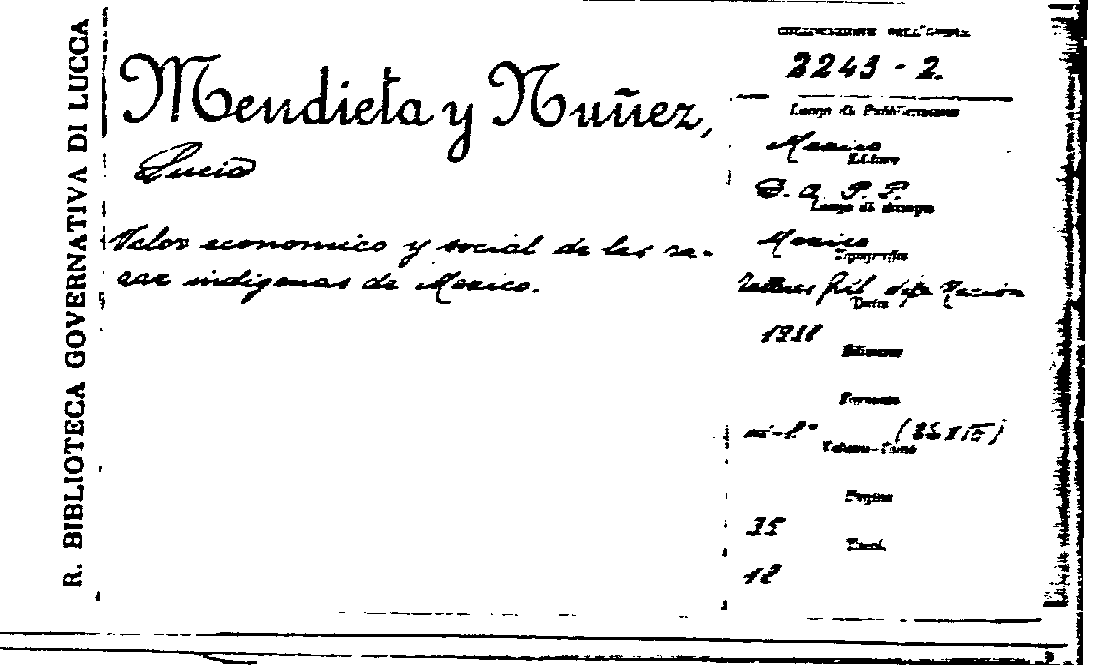 R. BIBLIOTECA GOVERNATIVA DI LUCCA
Mendieta y Nuñez,
Lucio
Valor economico y social de las ra-
zas indigenas de Mexico.
COLLOCAZIONE DELL'OPERA
2243 - 2.
Luogo di Pubblicazione
Mexico
Editore
D. A. P. P.
Luogo di stampa
Mexico
Tipografia
Talleres Nación
Data
1938
Edizione
Formato
in-8°
Volume-Tomo
Pagine
35
Tavol.
12